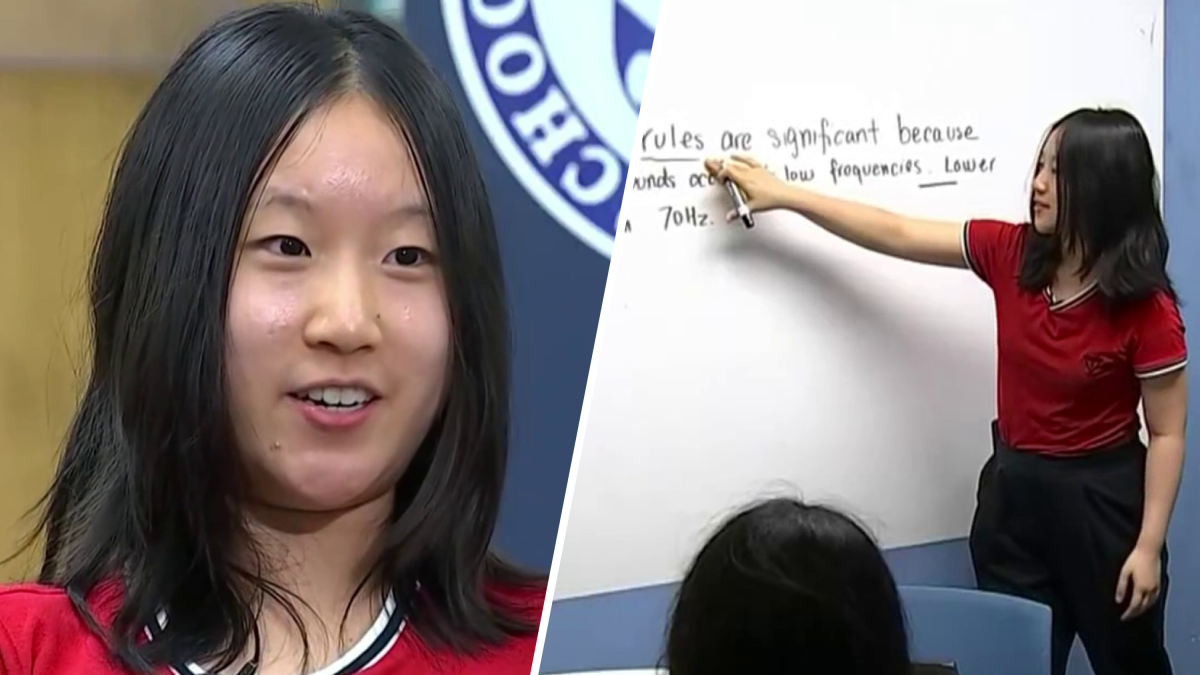 rules are significant because
low frequencies. Lower
70Hz.